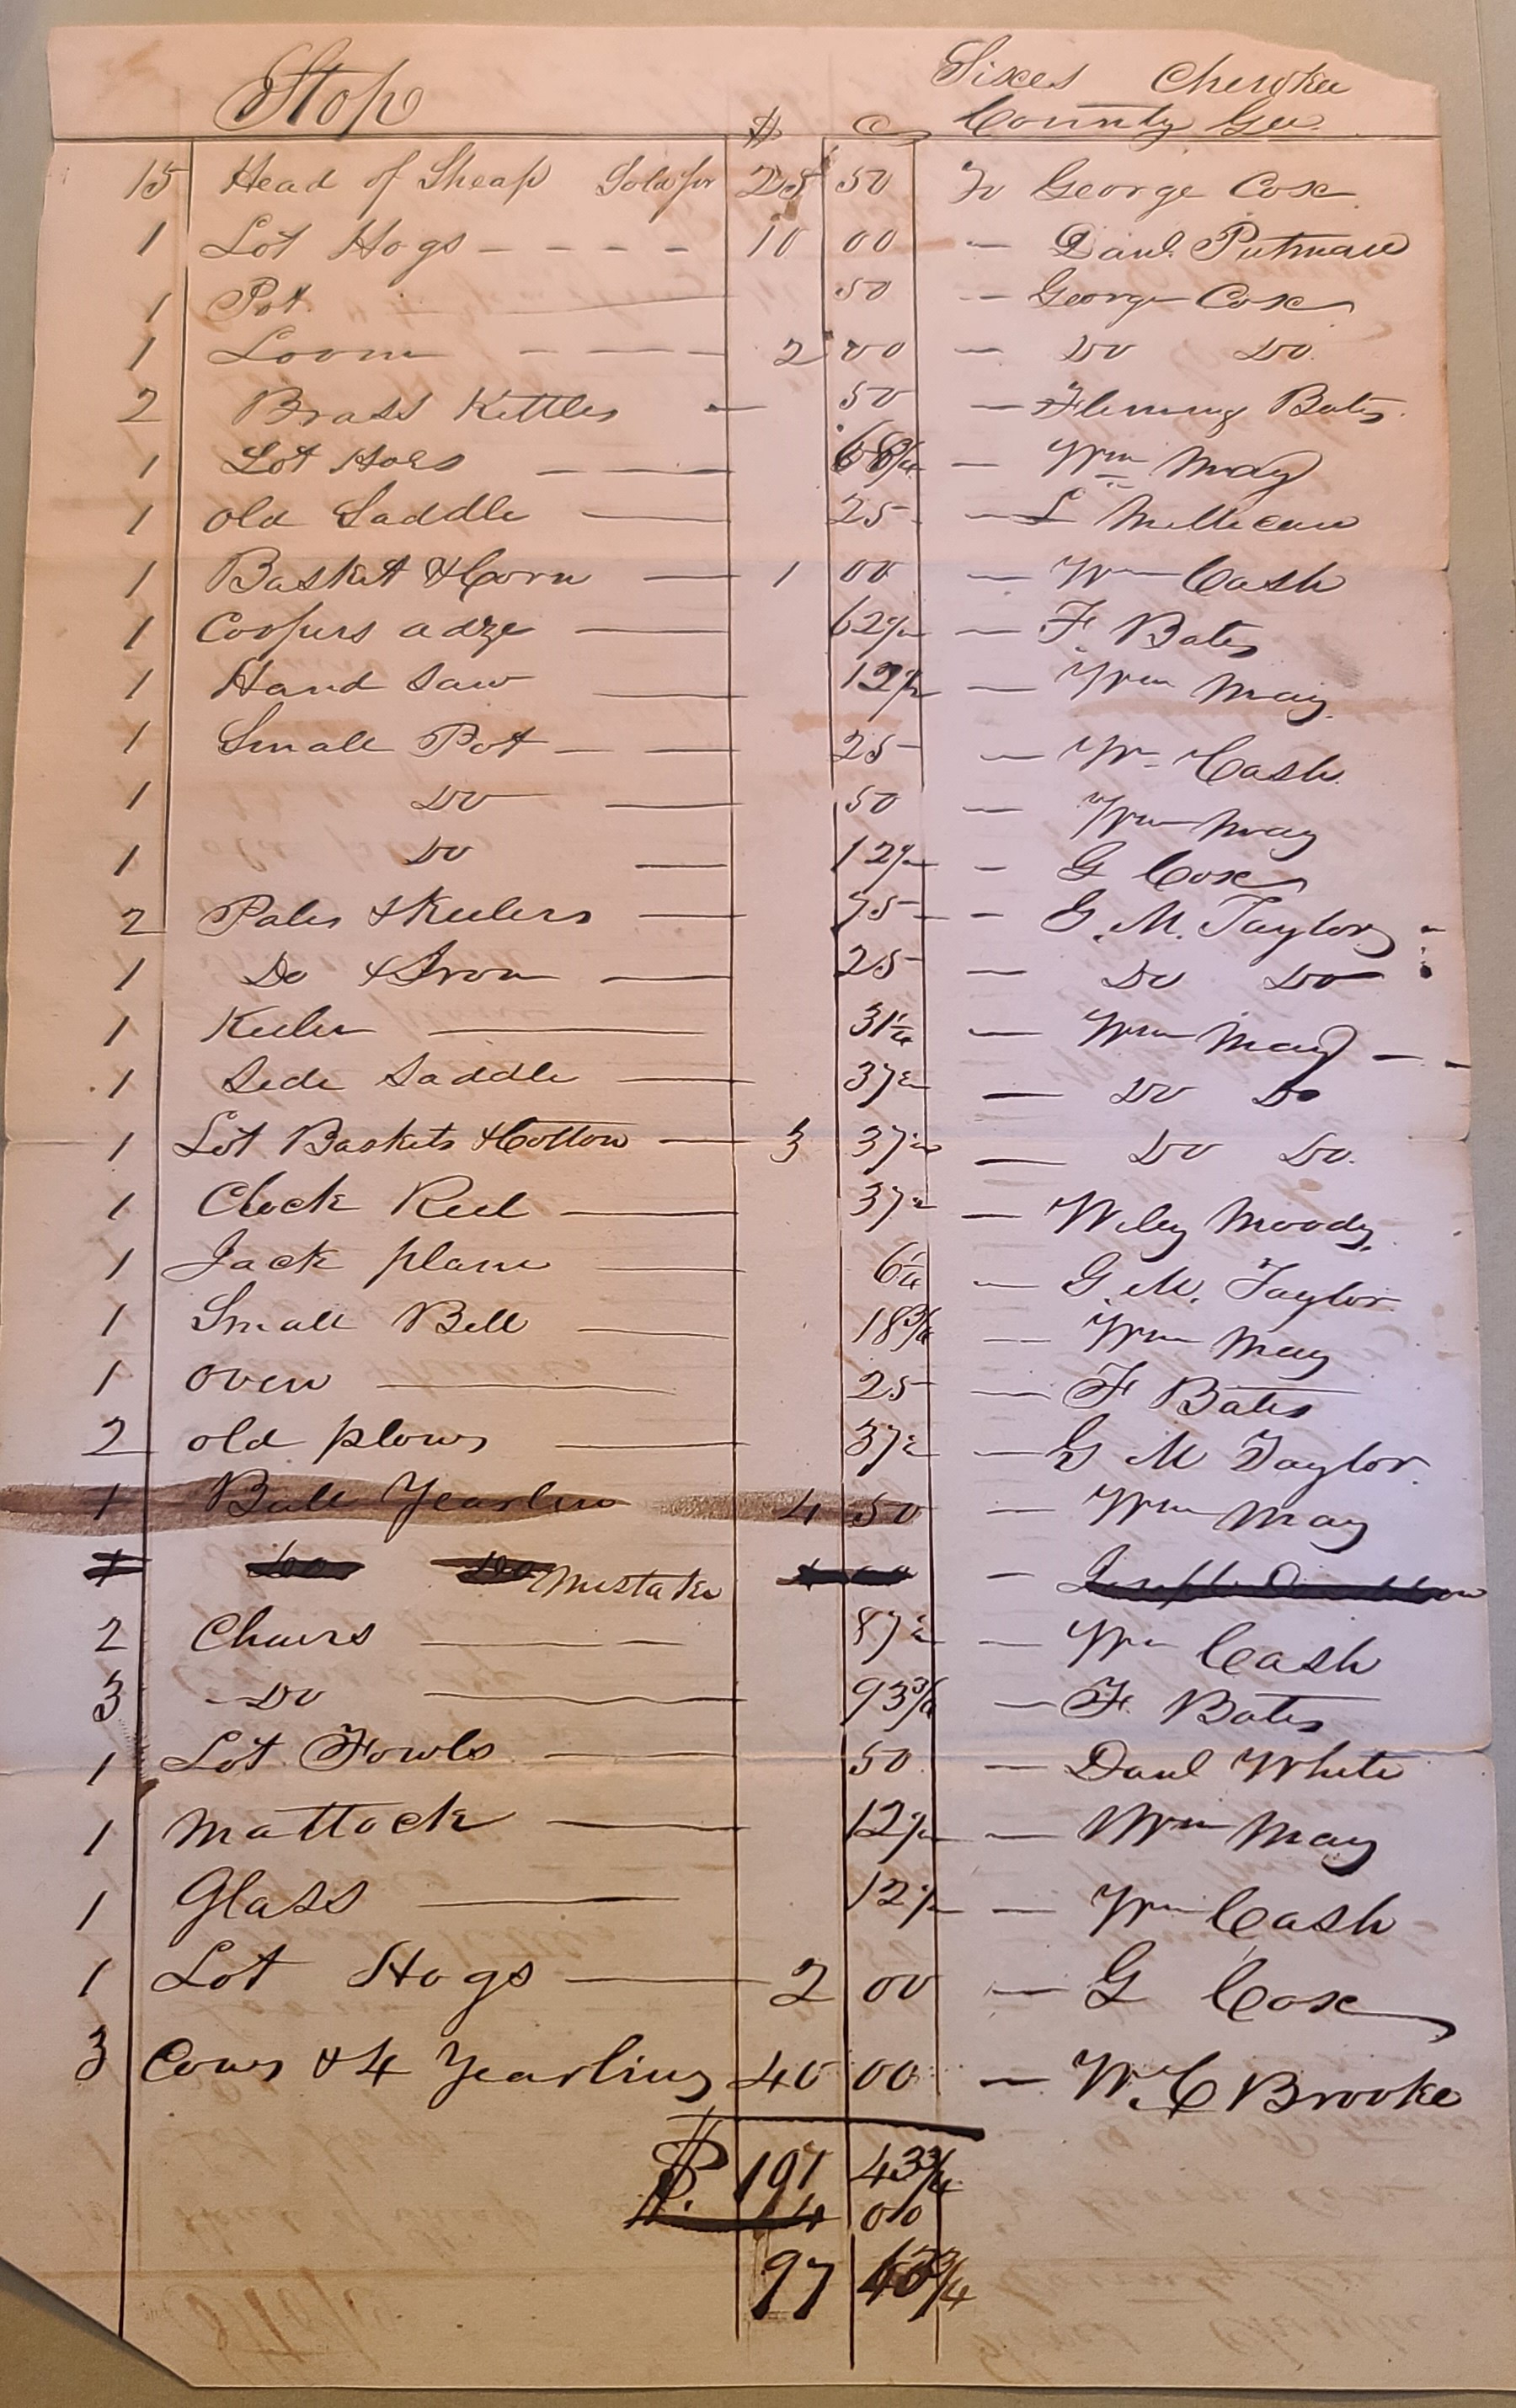 Stop
Sixes Cherokee
County Geo.
$ C
15 Head of Sheap Sold for 25 50 To George Cox
1 Lot Hogs - - - - 10 00 - Danl. Putman
1 Pot 50 - George Cox
1 Loom - - - - 2 00 - Do Do.
2 Brass Kittles - 50 - Fleming Bates.
1 Lot Hoes - - - 68 3/4 - Wm May
1 old Saddle - 25 - L Millican
1 Basket & Corn - 1 00 - Wm Cash
1 Coopers adze - 62 1/2 - F Bates
1 Hand Saw - 12 1/2 - Wm May.
1 Small Pot - - 25 - Wm Cash.
1 Do - 50 - Wm May
1 Do - 12 1/2 - G Cox
2 Pales & Keelers - 75 - G. M. Taylor -
1 Do & Iron - 25 - Do Do
1 Keeler - 31 1/4 - Wm May - -
1 Side Saddle - 37 1/2 - Do Do
1 Lot Baskets & Cotton - 3 37 1/2 - Do Do.
1 Clock Reel - 37 1/2 - Wiley Moody.
1 Jack plane - 6 1/4 - G. M. Taylor.
1 Small Bell - 18 3/4 - Wm May
1 oven - 25 - F Bates
2 old plows - 37 1/2 - G M Taylor.
1 Bull Yearlin 4 50 - Wm May
1 Do Do Mistake 4 00 -
2 Chairs - - - 87 1/2 - Wm Cash
3 - Do - 93 3/4 - F. Bates
1 Lot Fowls - - 50 - Danl White
1 Mattock - 12 1/2 - Wm May
1 Glass - 12 1/2 - Wm Cash
1 Lot Hogs - 2 00 - G Cox
3 Cows & 4 Yearlins 40 00 - W. C Brooke
$. 101 43 3/4
4 00
97 43 3/4